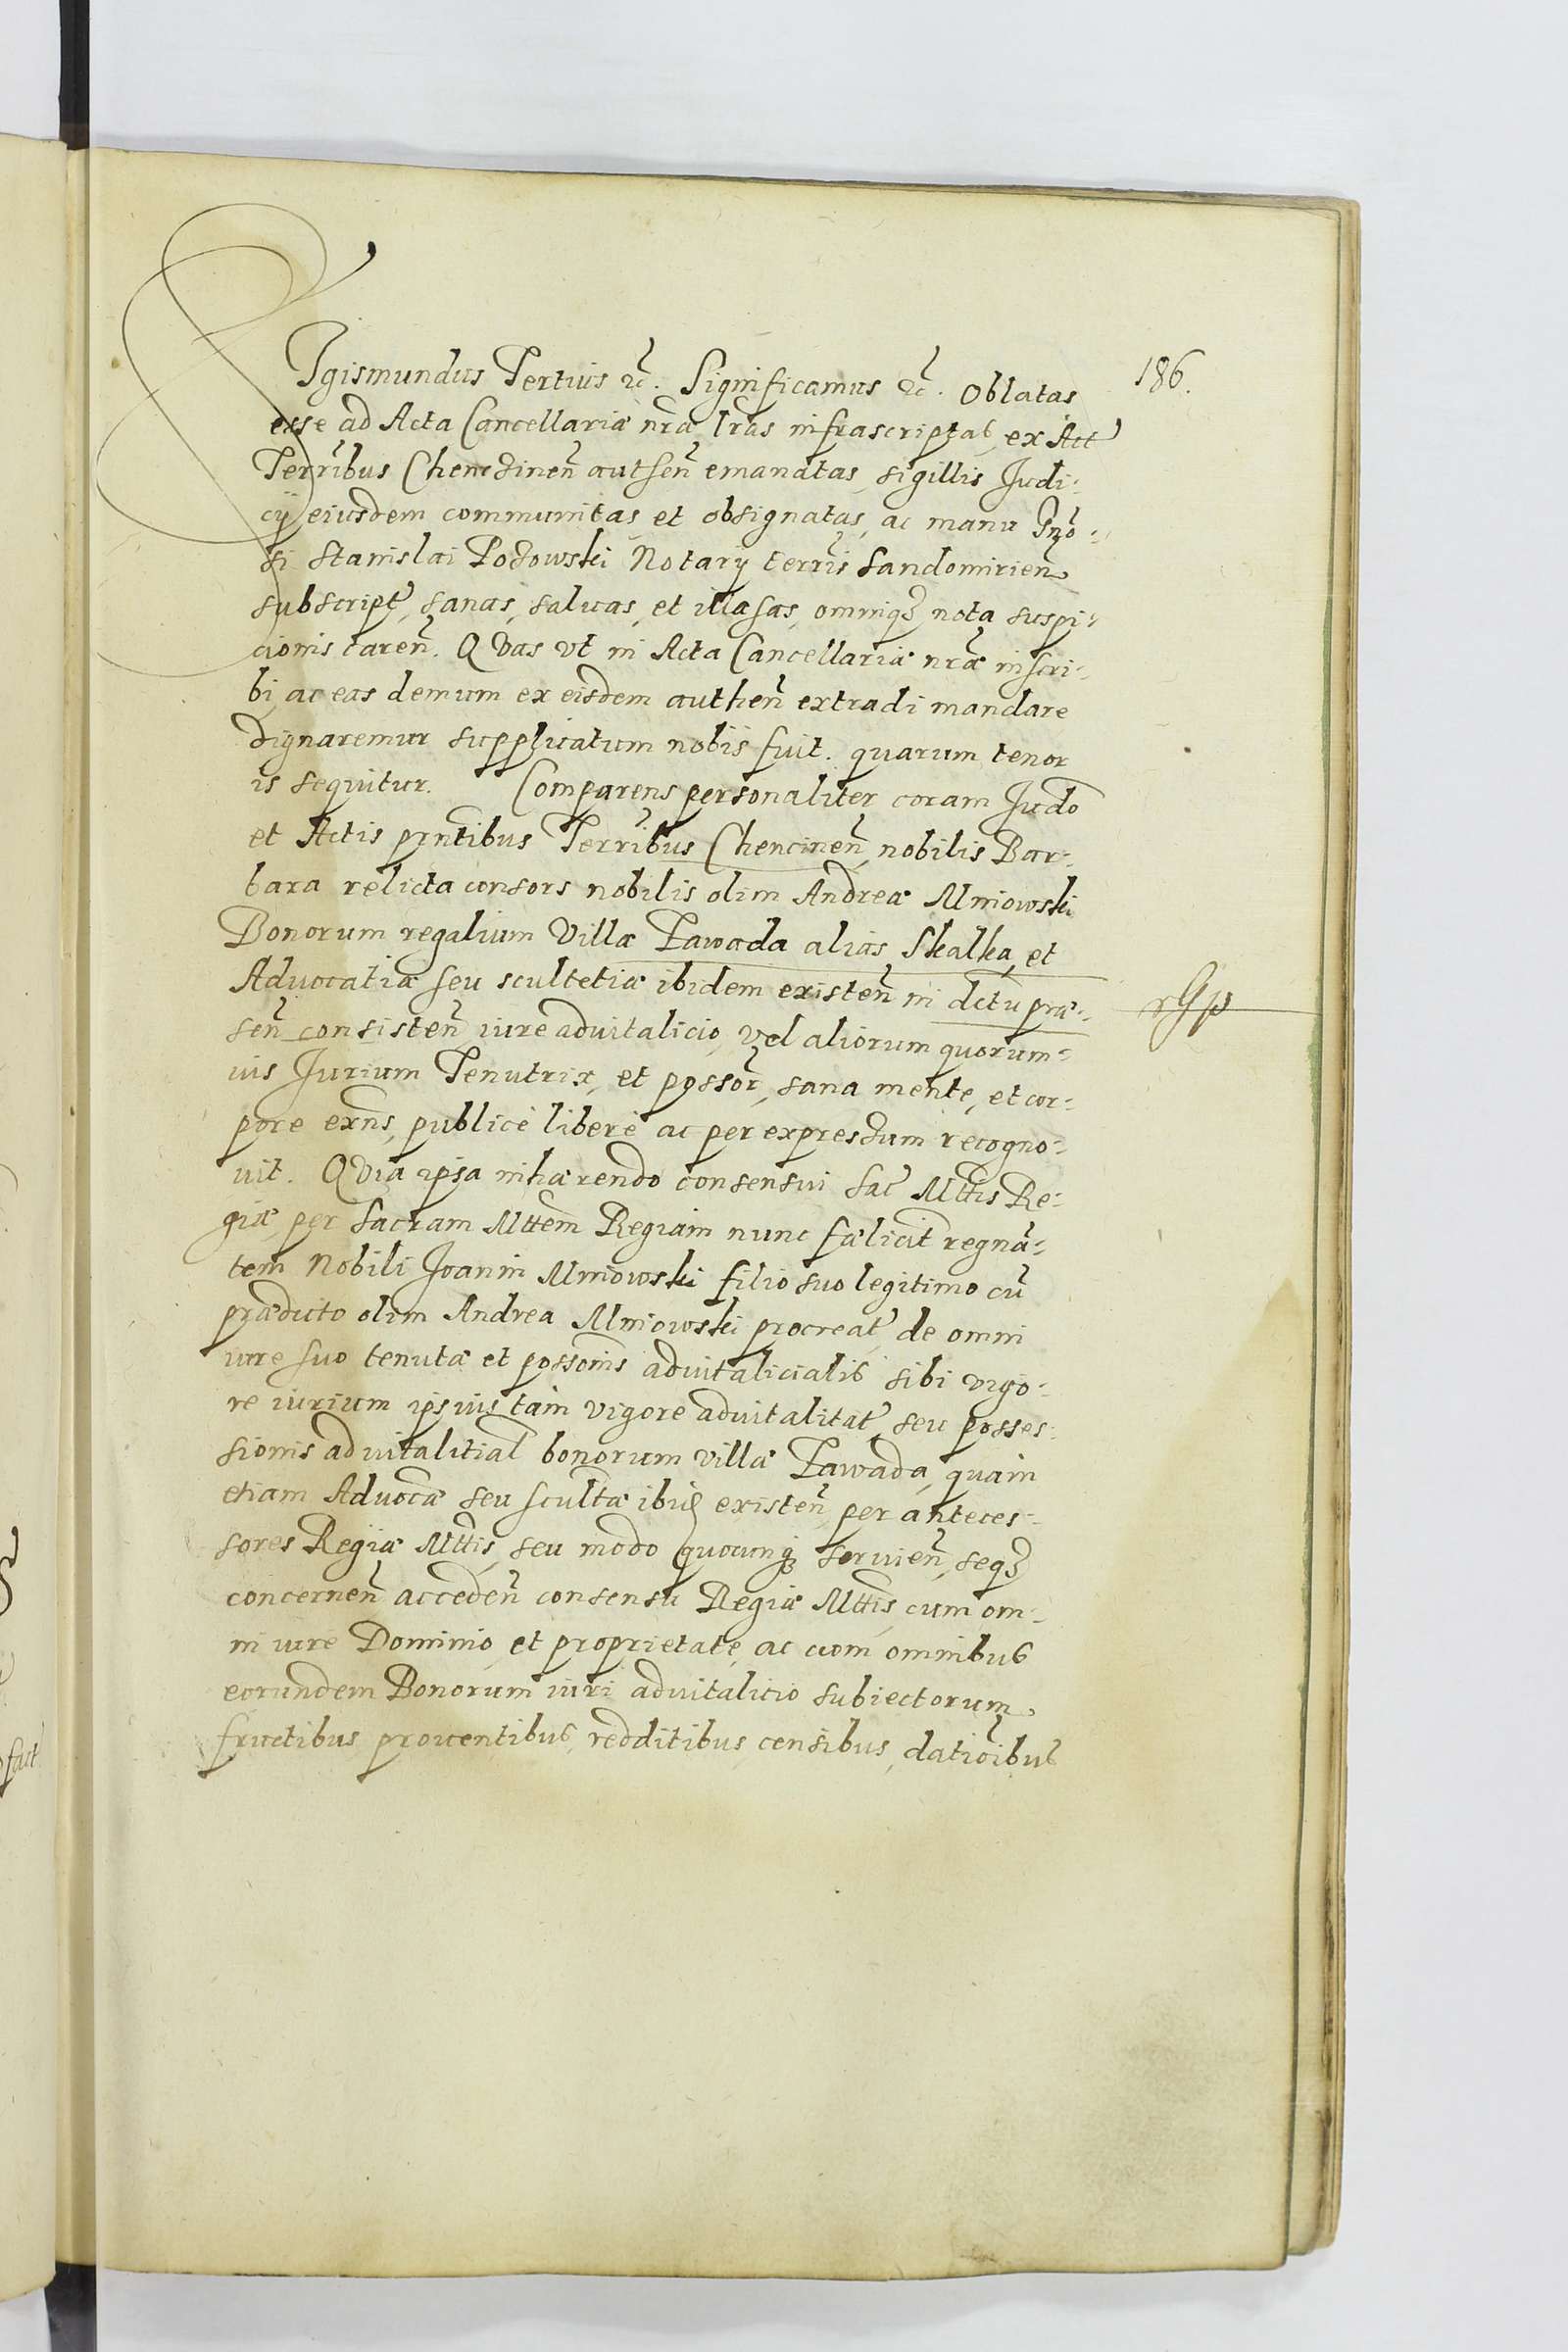 186.
SIgismundus Tertius etc. Significamus etc. Oblatas
esse ad Acta Cancellariæ nrã lrãs infrascriptas, ex Act
Terribus Chencinen̄ autħen̄ emanatas, sigillis Judi-
cij eiusdem communitas et obsignatas, ac manu Gn̄o-
si Stanislai Podowski Notarij terris Sandomirien̄
subscript, sanas, saluas, et illæsas, omniq̃ nota suspi-
cionis caren̄. QVas vt in Acta Cancellariæ nrã inscri-
bi, ac eas demum ex eisdem authen̄ extradi mandare
dignaremur supplicatum nobis fuit. quarum tenor
is sequitur. Comparens personaliter coram Judō
et Actis prn̄tibus Terribus Chencinen̄ nobilis Bar-
bara relicta consors nobilis olim Andreæ Mniowski
Bonorum regalium Villæ Zawada alias Skalka, et
Advocatiæ seu scultetiæ ibidem existen̄ in dc̄tu præ-
sen̄ consisten̄ iure aduitalicio, vel aliorum quorum-
uis Jurium Tenutrix, et possor, sana mente, et cor-
pore exn̄s, publicè liberè ac per expressum recogno-
uit. QVia ipsa inhærendo consensui Sac Mttis Re-
giæ, per Sacram Mttem Regiam nunc fælicit regnā-
tem Nobili Joanni Mniowski filio suo legitimo cū
prædicto olim Andrea Mniowski procreat de omni
iure suo tenutæ et possonis aduitalicialis sibi vigo-
re iurium ipsius tam vigore aduitalitat, seu posses-
sionis aduitalitial bonorum villæ Zawada, quam
etiam Advocæ seu scultæ ibid existen̄ per anteces-
sores Regiæ Mttis, seu modo quocunq̃ seruien̄, seq̃
concernen̄ acceden̄ consensu Regiæ Mttis, cum om-
ni iure Dominio, et proprietate, ac cum omnibus
eorundem Bonorum iuri aduitalicio subiectorum,
fructibus prouentibus, redditibus censibus, datiōibus